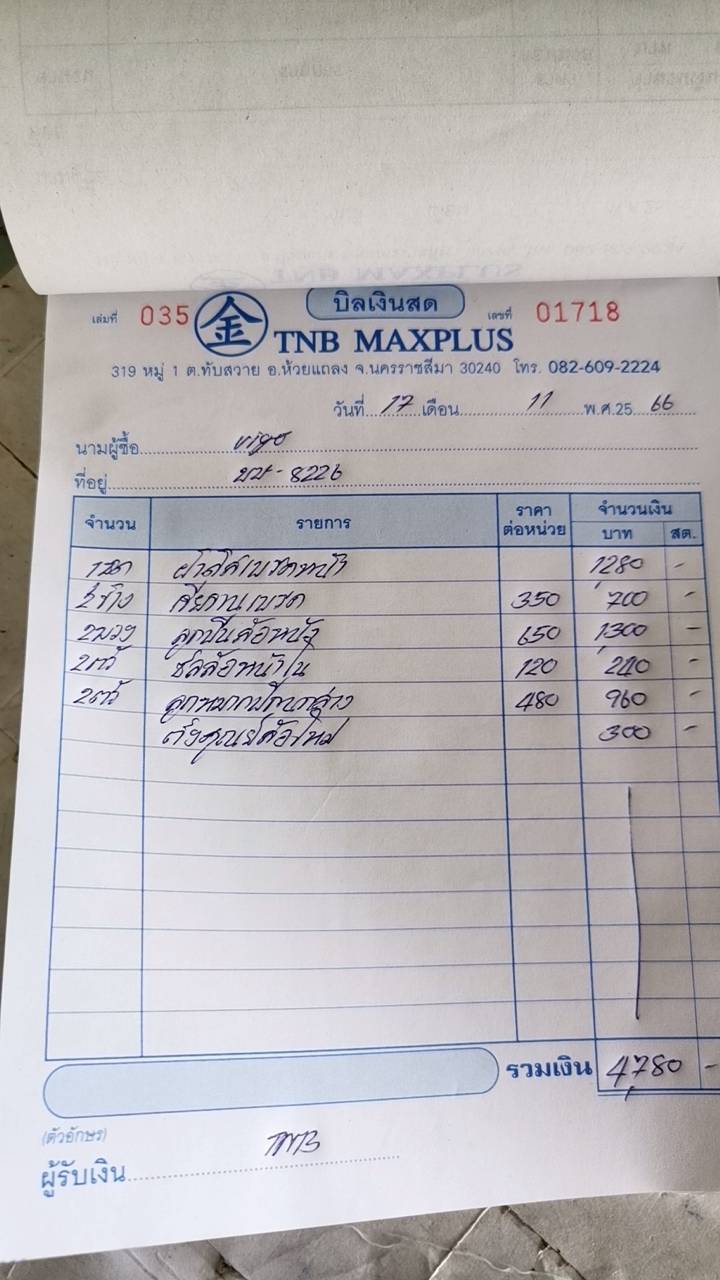 บิลเงินสด
เล่มที่ 035 金 เลขที่ 01718
TNB MAXPLUS
319 หมู่ 1 ต.ทับสวาย อ.ห้วยแถลง จ.นครราชสีมา 30240 โทร. 082-609-2224
วันที่ 17 เดือน 11 พ.ศ.25 66
นามผู้ซื้อ vigo
ที่อยู่ 8226
จำนวน รายการ ราคาต่อหน่วย จำนวนเงิน
บาท สต.
1ชุด ผ้าดิสเบรคหน้า 1280 -
2ข้าง เจียจานเบรค 350 700 -
2 ลูกปืนล้อหลัง 650 1300 -
2ตัว ซีลล้อหน้าใน 120 240 -
2ตัว ลูกหมากปีกนกล่าง 480 960 -
ตั้งศูนย์ล้อใหม่ 300 -
รวมเงิน 4,780 -
(ตัวอักษร)
TNB
ผู้รับเงิน